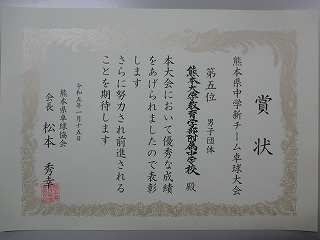 賞状
熊本県中学新チーム卓球大会
第五位 男子団体
熊本大学教育学部附属中学校 殿
本大会において優秀な成績
をあげられましたので表彰
します
さらに努力され前進される
ことを期待します
令和五年一月十五日
熊本県卓球協会
会長 松本 秀幸